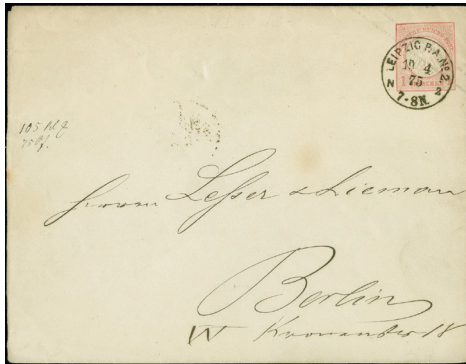 LEIPZIG P.A. No 2.
19 4
75
7-8N.
Herren Lesser & Liemann
Berlin
W Kronenstr 18